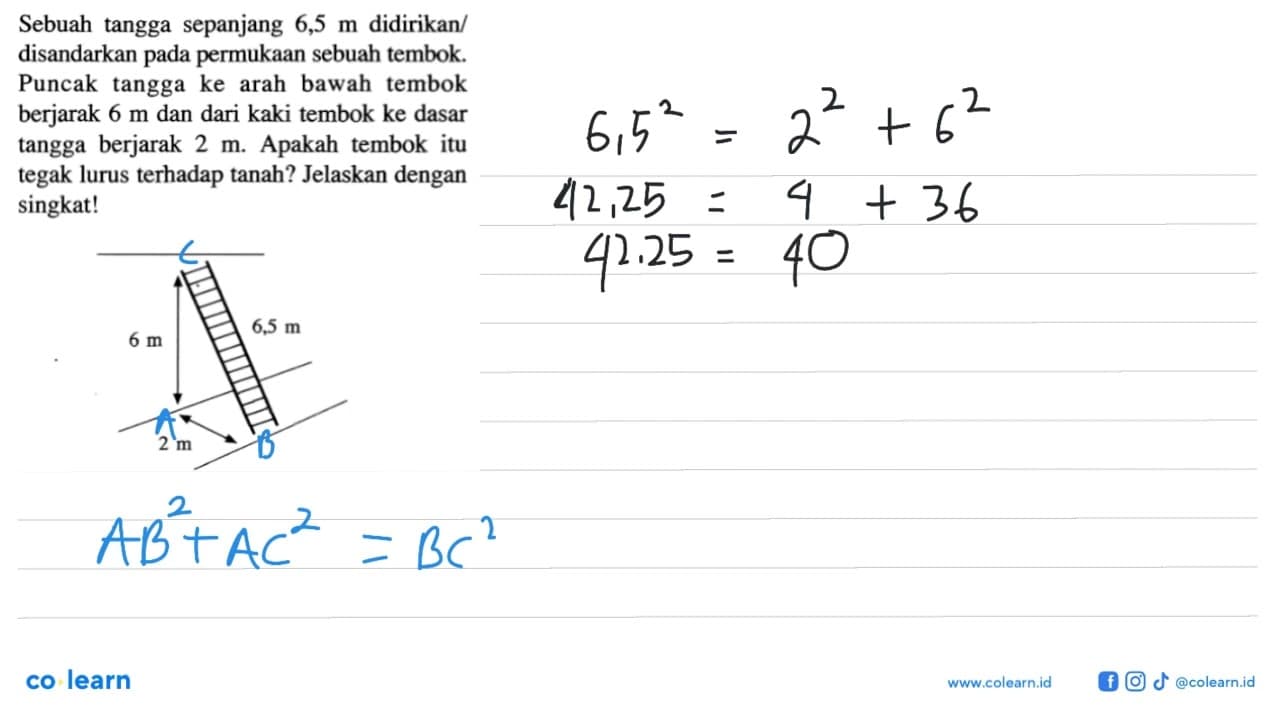 Sebuah tangga sepanjang 6,5 m didirikan/
disandarkan pada permukaan sebuah tembok.
Puncak tangga ke arah bawah tembok
berjarak 6 m dan dari kaki tembok ke dasar
tangga berjarak 2 m. Apakah tembok itu
tegak lurus terhadap tanah? Jelaskan dengan
singkat!
6,5² = 2² + 6²
42,25 = 4 + 36
42.25 = 40
C
6 m
6,5 m
A
2 m
B
AB² + AC² = BC²
co learn
www.colearn.id
@colearn.id